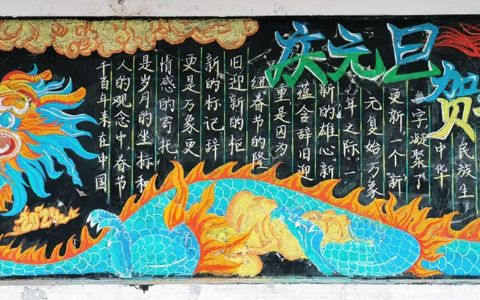 庆元旦
贺
千百年来在中国
人的观念中,春节
是岁月的坐标和
情感的寄托
更是万象更
新的标记辞
旧迎新的枢
纽春节的隆
重是因为
蕴含辞旧迎
新的雄心新
年之际,一
元复始万象
更新,一个“新”
字凝聚了
中华
民族生
2024